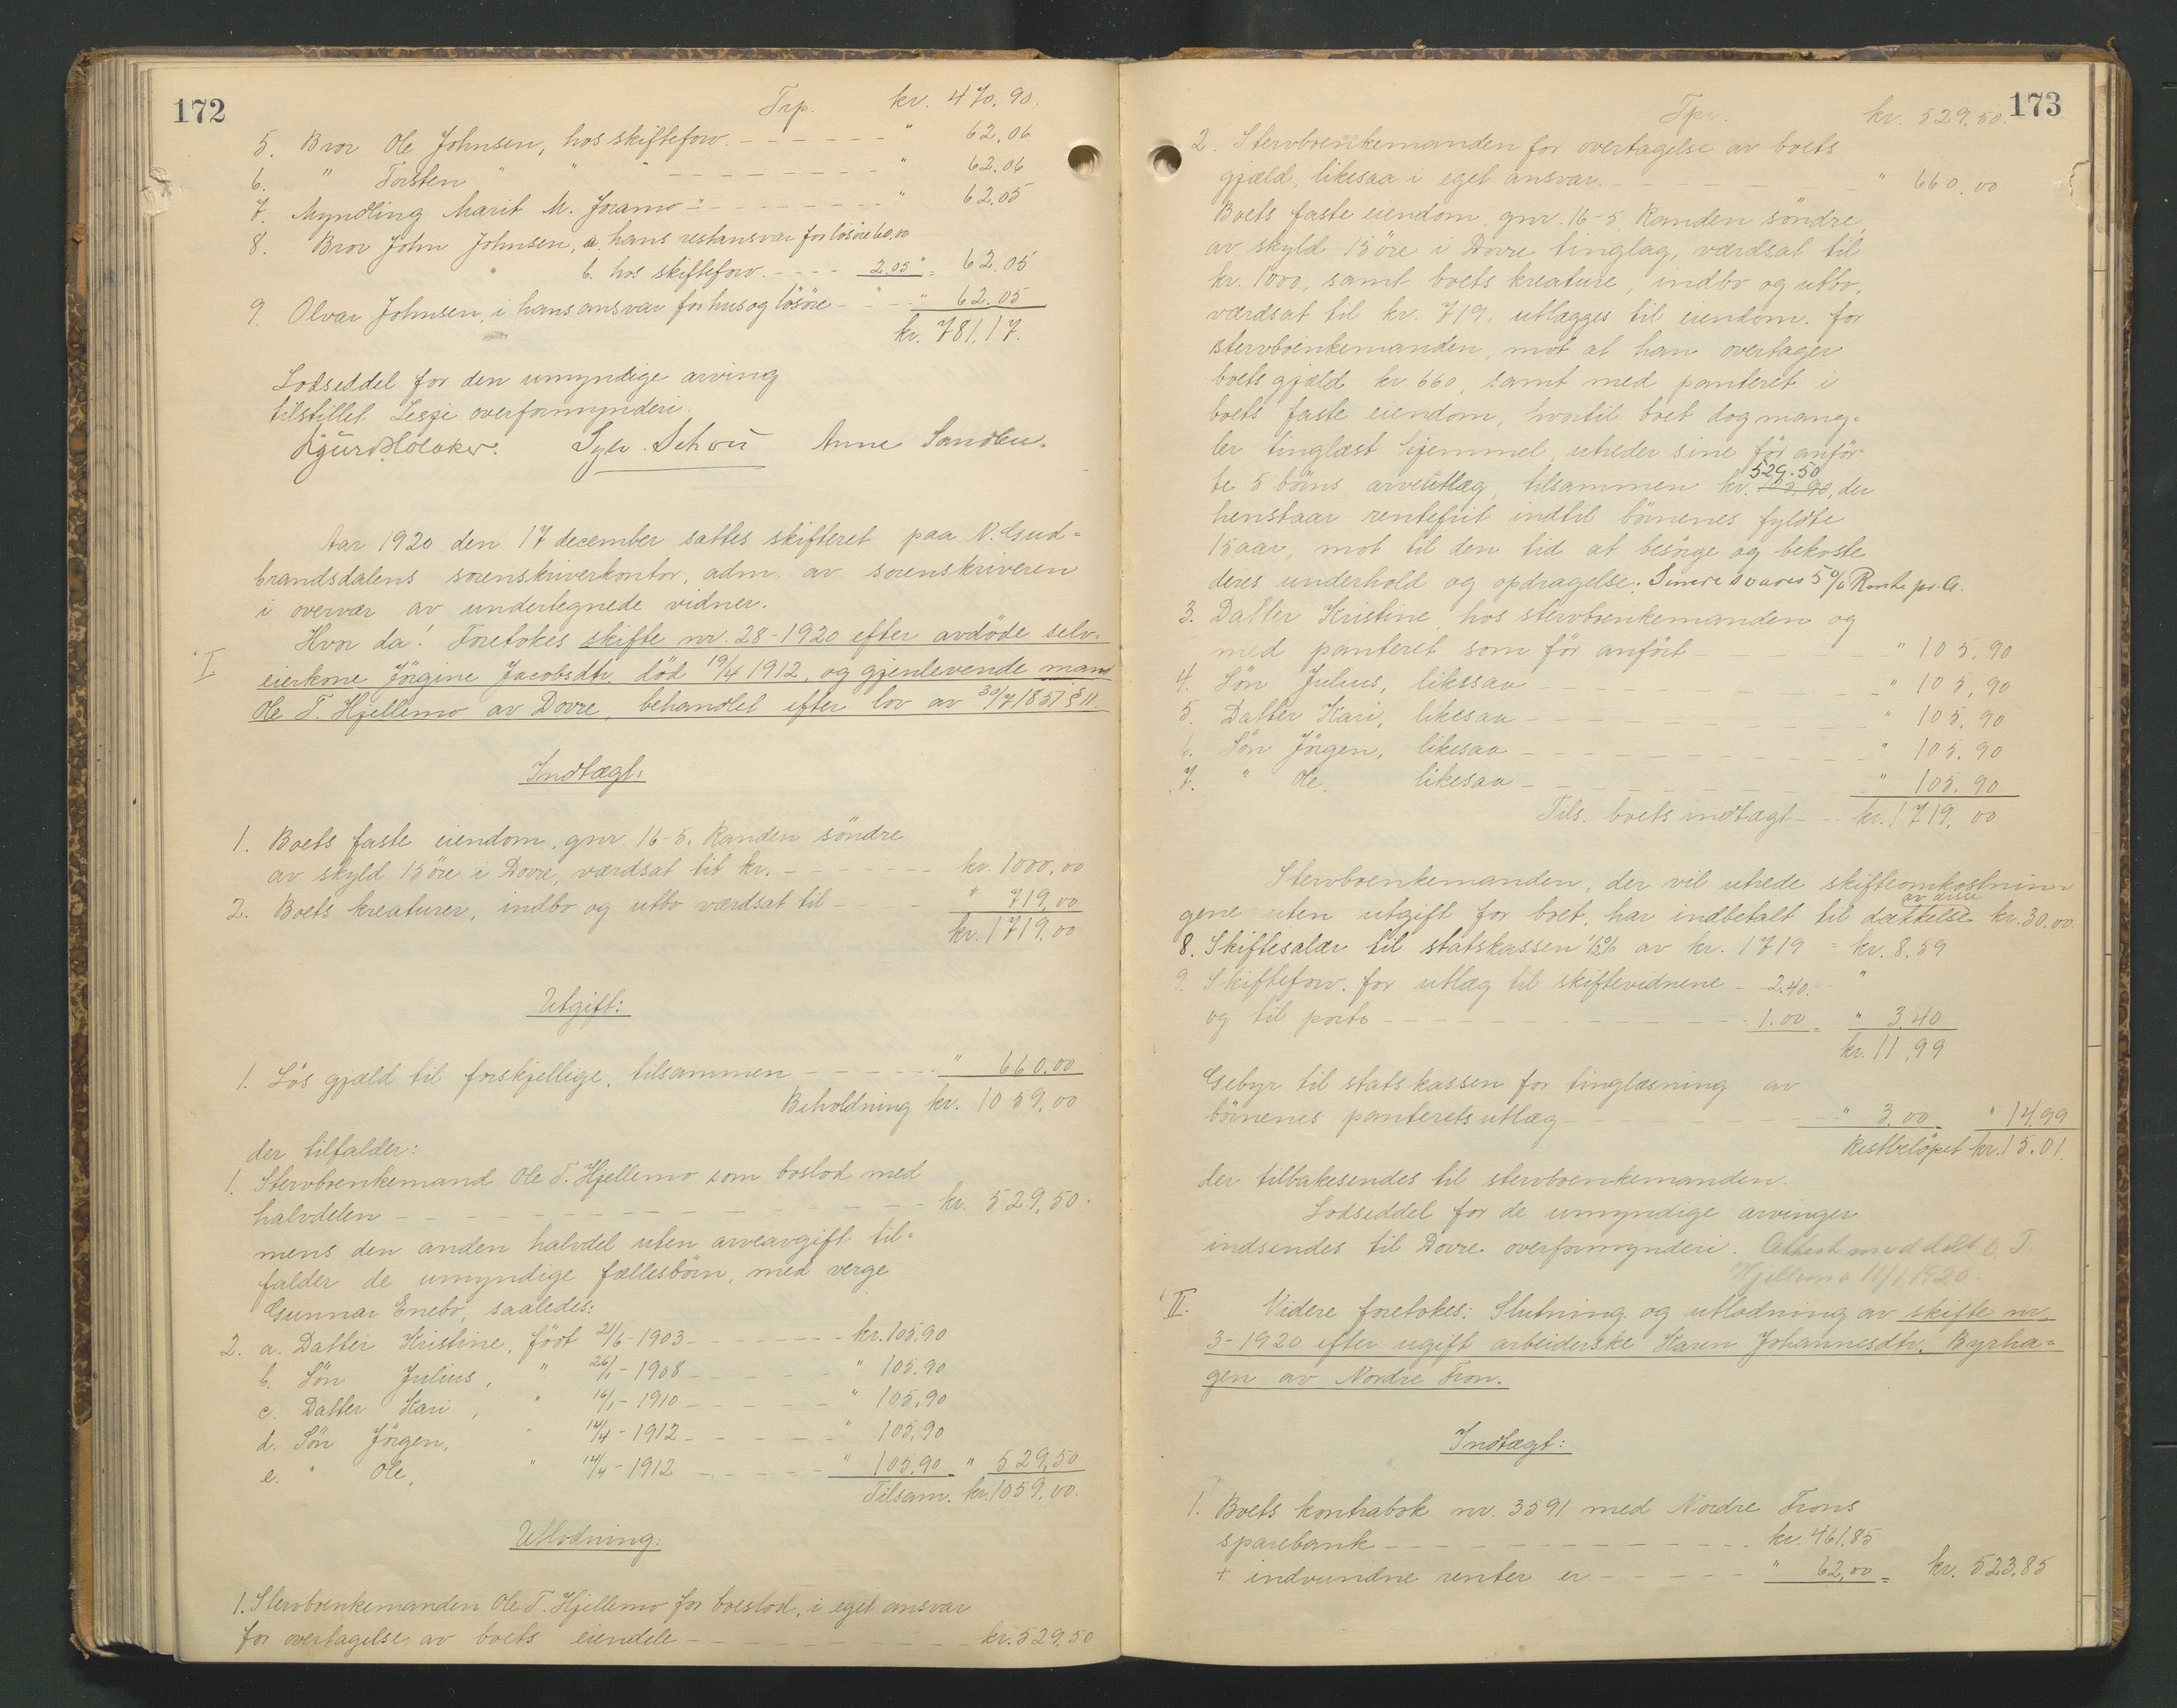 172
Trp. kr. 470,90.
5. Bror Ole Johnsen, hos skifteforv. " 62,06
6. " Torsten " " " 62.06
7. Myndling Marit M. Joramo " " 62.05
8. Bror John Johnsen, a hans restansvar for løsöre 60,00
b. hos skifteforv. 2.05 " = 62.05
9. Olvar Johnsen, i hans ansvar for hus og lösöre " 62.05
kr. 781,17.
Lodseddel for den umyndige arving
tilstillet Lesje overformynderi.
Anne Sandbu.
Aar 1920 den 17 december sattes skifteret paa N. Gud-
brandsdalens sorenskriverkontor, adm. av sorenskriveren
i overvær av undertegnede vidner.
Hvor da! Foretokes skifte nr. 28-1920 efter avdöde selv-
I
eierkone Jörgine Jacobsdtr. död 19/4 1912, og gjenlevende mand
Ole T. Hjellemo av Dovre, behandlet efter lov av 30/7 1851 § 11.
Indtægt:
1. Boets faste eiendom, gnr. 16-5. Randen söndre
av skyld 15 öre i Dovre, værdsat til kr. kr. 1000,00
2. Boets kreaturer, indbo og utbo værdsat til " 719,00
kr. 1719,00
Utgift:
1. Lös gjæld til forskjellige, tilsammen " 660.00
Beholdning kr. 1059,00
der tilfalder:
1. Stervboenkemand Ole T. Hjellemo som boslod med
halvdelen kr. 529,50.
mens den anden halvdel uten arveavgift til-
falder de umyndige fællesbörn, med verge
Gunnar Enebo, saaledes:
2. a. Datter Kristine, födt 21/6-1903 kr. 105.90
b. Sön Julius, " 26/1-1908 " 105.90
c. Datter Kari, " 16/1-1910 " 105,90
d. Sön Jörgen, " 14/4-1912 " 105,90
e. " Ole, " 14/4-1912 " 105,90 = " 529,50
Tilsam. kr. 1059,00.
Utlodning:
1. Stervboenkemanden Ole T. Hjellemo for boeslod, i eget ansvar
for overtagelse av boets eiendele kr. 529,50
173
Tpr. kr. 529,50.
2. Stervboenkemanden for overtagelse av boets
gjæld, likesaa i eget ansvar. " 660,00
Boets faste eiendom, gnr. 16-5 Randen söndre,
av skyld 15 öre i Dovre tinglag, værdsat til
kr. 1000, samt boets kreature, indbo og utbo,
værdsat til kr. 719, utlægges til eiendom for
stervboenkemanden, mot at han overtager
boets gjæld kr 660, samt med panteret i
boets faste eiendom, hvortil boet dog mang-
ler tinglæst hjemmel, utreder sine för anför-
529.50
te 5 börns arveutlæg, tilsammen kr. , der
henstaar rentefrit indtil börnenes fyldte
15 aar, mot til den tid at besörge og bekoste
deres underhold og opdragelse. Senere svares 5% Rente pr. A.
3. Datter Kristine hos stervboenkemanden og
med panteret som för anfört " 105,90
4. Sön Julius, likesaa " 105,90
5. Datter Kari, likesaa " 105,90
6. Sön Jörgen, likesaa " 105,90
7. " Ole, likesaa " 105,90
Tils. boets indtægt kr. 1719,00
Stervboenkemanden, der vil utrede skifteomkostnin-
av disse
gene uten utgift for boet, har indbetalt til dækkelse kr. 30.00
8. Skiftesalær til statskassen 1/2% av kr. 1719 = kr. 8,59
9. Skifteforv. for utlæg til skiftevidnene 2.40 "
og til porto 1.00 = " 3,40
kr. 11,99
Gebyr til statskassen for tinglæsning av
börnenes panteretsutlæg " 3,00 = " 14,99
Restbelöpet kr. 15.01
der tilbakesendes til stervboenkemanden.
Lodseddel for de umyndige arvinger
indsendes til Dovre overformynderi. Attest meddelt O. T
Hjellemo 11/1 1926.
II. Videre foretokes: Slutning og utlodning av skifte nr.
3-1920 efter ugift arbeiderske Karen Johannesdtr. Byrha-
gen av Nordre Fron.
Indtægt:
1. Boets kontrabok nr. 3591 med Nordre Frons
sparebank kr. 461,85
+ indvundne renter er " 62,00 = kr. 523,85